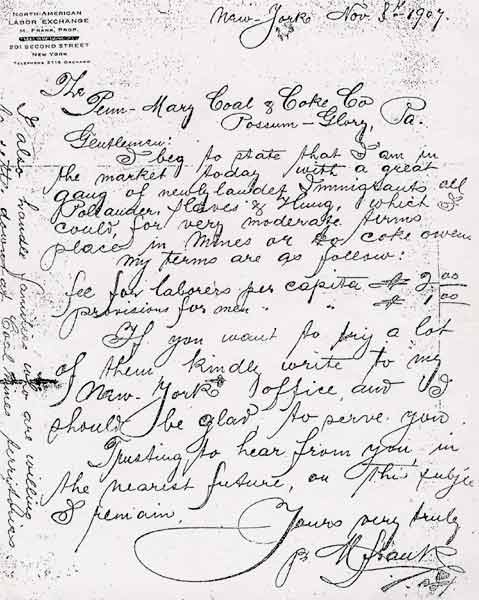 NORTH-AMERICAN
LABOR EXCHANGE
M. FRANK, PROP.
201 SECOND STREET
NEW YORK
TELEPHONE 2116 ORCHARD
New-York Nov 3th 1907.
The
Penn-Mary Coal & Coke Co
Possum-Glory, Pa.
Gentlemen:
I beg to state that I am in
the market today with a great
gang of newlylandet Immigrants all
Pollander, Slaves & Hung, which I
could for very moderate terms
place in mines or coke ovens
my terms are as follow:
fee for laborers per capita $ 2.00
provisions for men " " $ 1.00
If you want to try a lot
of them kindly write to my
New-York office, and I
should be glad to serve you.
Trusting to hear from you, in
the nearest future, on this subje
I remain.
Yours very truly
pr M Frank
I also handle families who are willing
to settle down at Coal mines